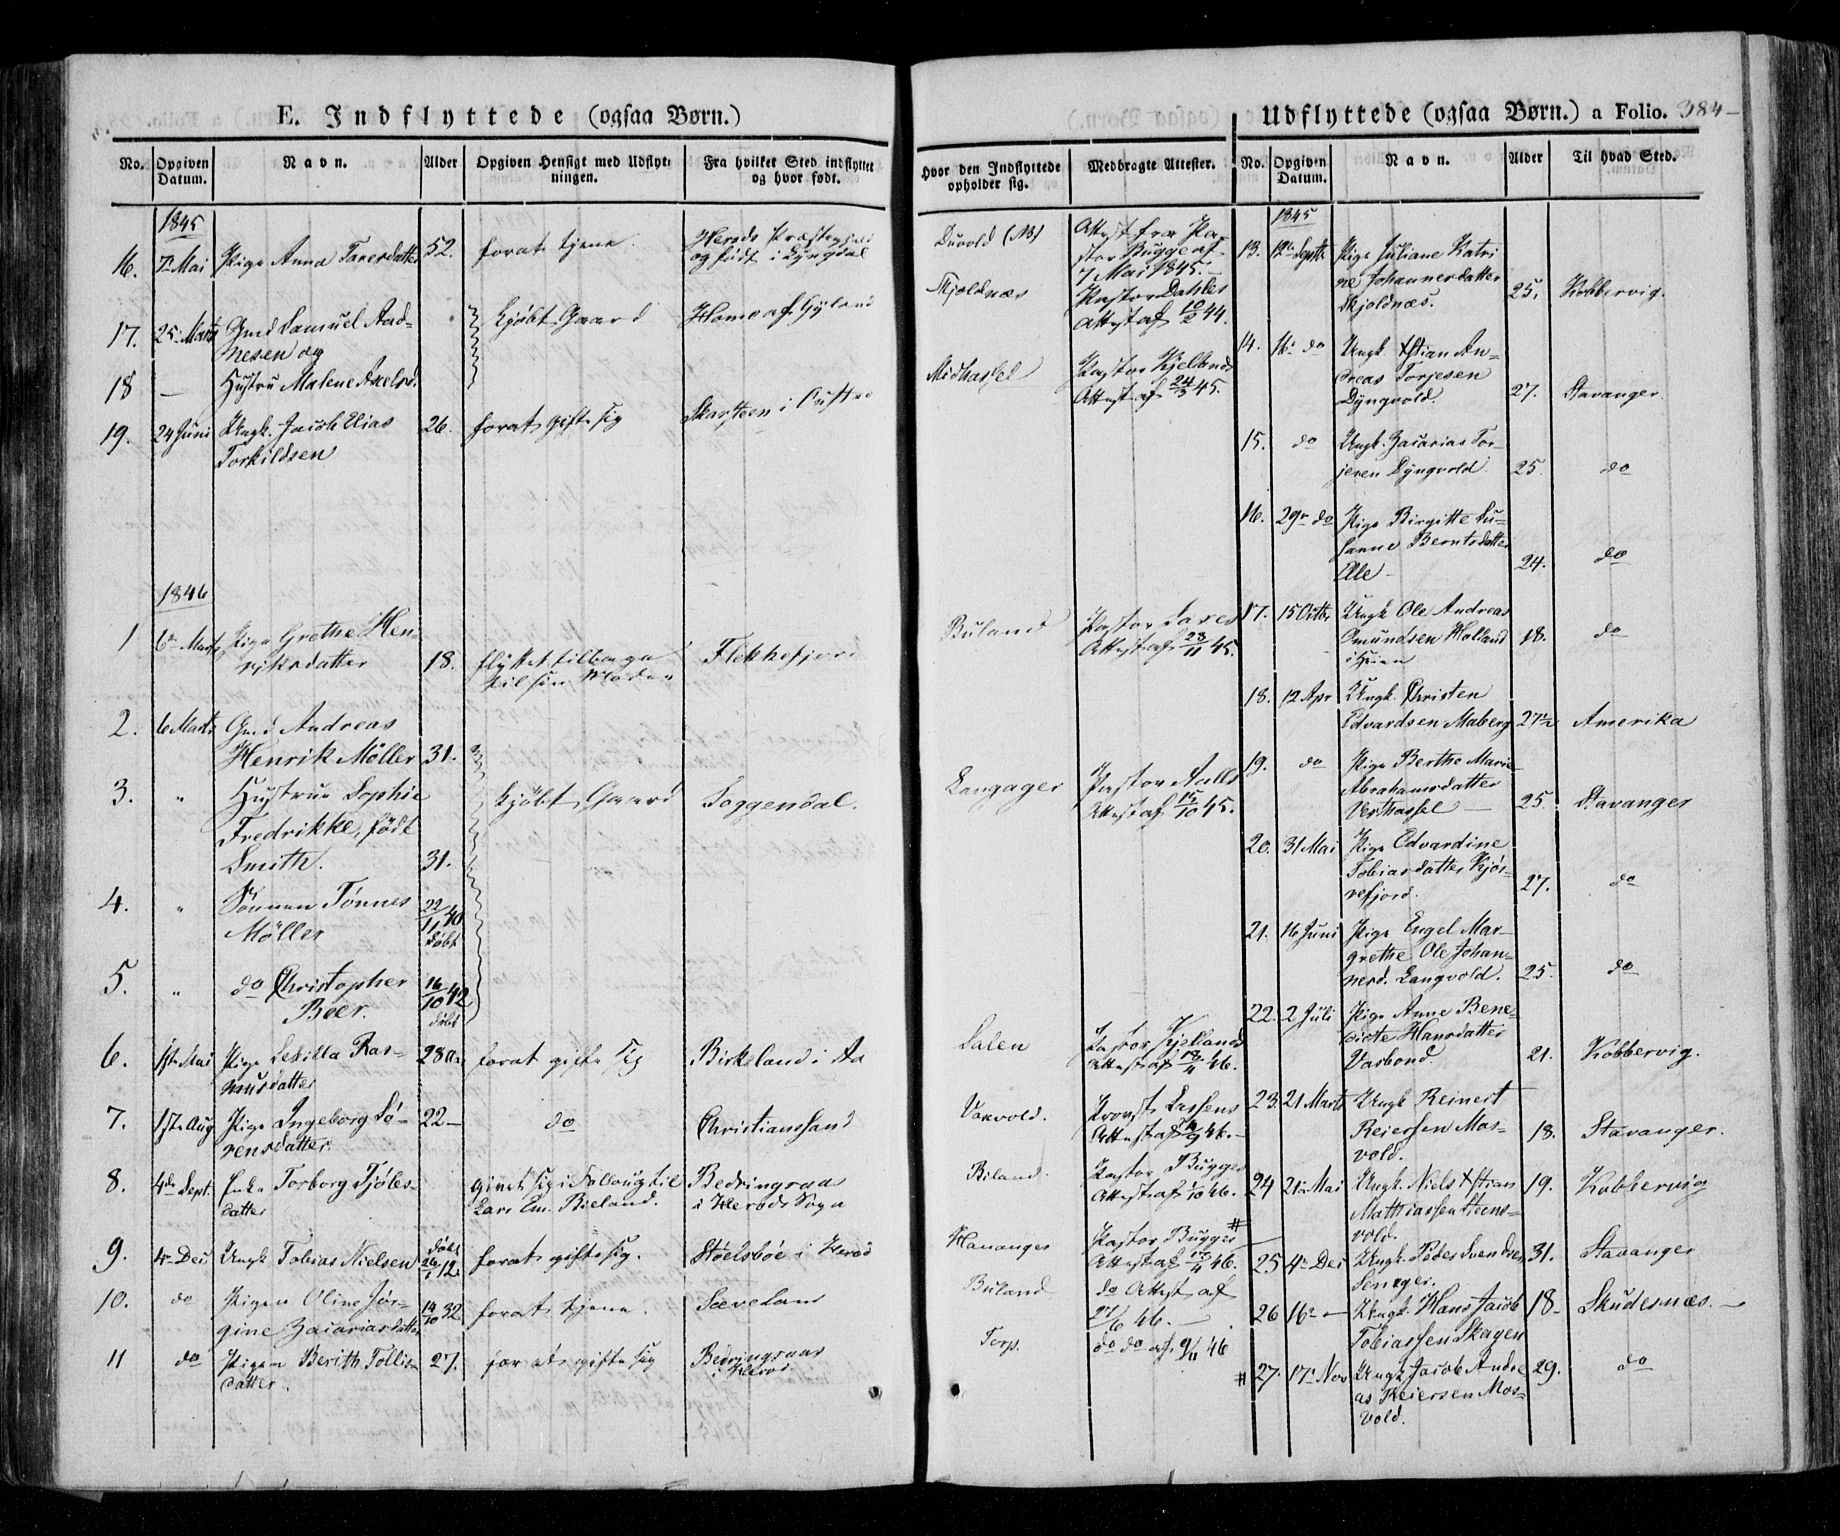 E. Indflyttede (ogsaa Børn.)
No.
Opgiven Datum.
Navn.
Alder
Opgiven Hensigt med Udflytningen.
Fra hvilket Sted indflyttet og hvor født.
Hvor den Indflyttede opholder sig.
Medbragte Attester.
1845
16. 7 Mai Pige Anna Tanesdatter 52. forat tjene. Herods Præstegjeld
og født i Lyngdal
Duvold (NB) Attest fra Pa-
stor Bugge af
7 Mai 1845.
17. 25 Marts Gmd Samuel Aad-
nesen og
Kjøbt Gaard Homo af Gyland
Skjoldnæs Pastor Dahles
Attest af 10/2 44.
18 — Hustru Malene Axelsd.
19. 24 Juni Ungk. Jacob Elias
Torkildsen
26. forat gifte sig
Midhassel Pastor Kjellands
Attest af 24/3 45.
1846
1 6 Marts Pige Grethe Hen-
riksdatter 18. flyttet tilbage
til sin Moder
Flekkefjord
Buland Pastor
Attest af 23/11 45.
2. 6 Marts Gmd Andreas
Henrik Möller 31.
3. " Hustrue Sophie
Fredrikke, født
Smith. 31.
Kjøbt Gaard Soggendal.
Langager Pastor Aalls
Attest af 15/10 45.
4. " Sønnen Tønnes
Möller
22/11 40
døbt
5. " do Christopher
Beer.
16/10 42
døbt
6. 1ste Mai Pige Lesilla Ras-
musdatter
28 forat gifte sig Birkeland i Aa
Salen Pastor Kjellands
Attest af 18/4 46.
7. 1ste Aug Pige Ingeborg Sö-
rensdatter.
22— do Christianssand
Varvold. Provst Lassens
Attest af 46.—
8. 4de Sept. Enke Torborg Tjöles-
datter
givet sig i Følge til
Lars Em. Bieland.
Bedringsaa
i Herods Sogn
Biland. Pastor Bugges
Attest af 1/10 46.
9. 4 Dec Ungk Tobias Nielsen
døbt
26/1 12.
forat gifte sig. Stølsböe i Herod
Hananger Pastor Bugges
Attest af 46.
10. do Pigen Oline Jör-
gine Zacariasdatter
14/10 32 forat tjene. Sæveland
Buland do Attest af
27/6 46.—
11 do Pigen Berith Tollis-
datter.
27. for at gifte sig Bedringsaas
i Herod
Torp. do do af 9/11 46
Udflyttede (ogsaa Børn.) a Folio. 384-
No.
Opgiven Datum.
Navn.
Alder
Til hvad Sted.
1845
13. 12te Septbr Pige Juliane Katri
ne Johannesdatter
Skjoldnæs. 25. Kobbervig.
14. 16 do Ungk. Xstian An-
dreas Torjesen
Dyngvold. 27. Stavanger
15. do Ungk. Zacarias Tor-
jesen Dyngvold 25. do
16. 29 do Pige Birgitte Su-
sanne Berntsdatter
Elle— 24. do
17. 15 Octbr Ungk Ole Andreas
Omundsen Holland 18. do
18. 12 Apr Ungk. Christen
Edvardsen Maberg 27½ Amerika
19. do Pige Berthe Marie
Abrahamsdatter
Vesthassel — 25. Stavanger
20. 31 Mai Pige Edvardine
Tobiasdatter Kjör-
refjord. 27. do
21. 16 Juni Pige Engel Mar-
grethe Ole Johan-
nesd. Langvold. 25. do
22. 2 Juli Pige Anne Bene-
dicte Hansdatter
Varbond. 21. Kobbervig.
23. 21 Marts Ungk Reinert
Reiersen Mos-
vold. 18. Stavanger.
24 21 Mai Ungk. Niels Xstian 19. Kobbervig
Mathiassen Steens-
vold.
#
25 4 Dec Ungk. Peder Svendsen 31. Stavanger
26 16 — Ungk. Hans Jacob 18— Skudesnæs.—
Tobiassen Skagen
# 27. 17 Nov Ungk Jacob Andre 29. do
as Reiersen Mos-
vold.